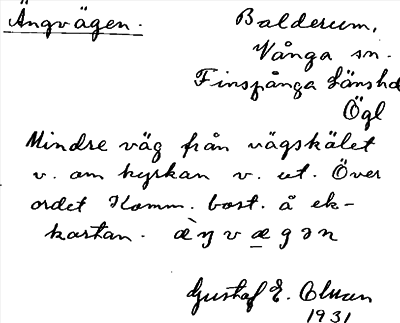 Ängvägen.
Balderum,
Vånga sn.
Finspånga länshd
Ögl
Mindre väg från vägskälet
v. om kyrkan v. ut. Över
ordet Komm. bost. å ek-
kartan. æ̀ŋvægən
Gustaf E.
1931